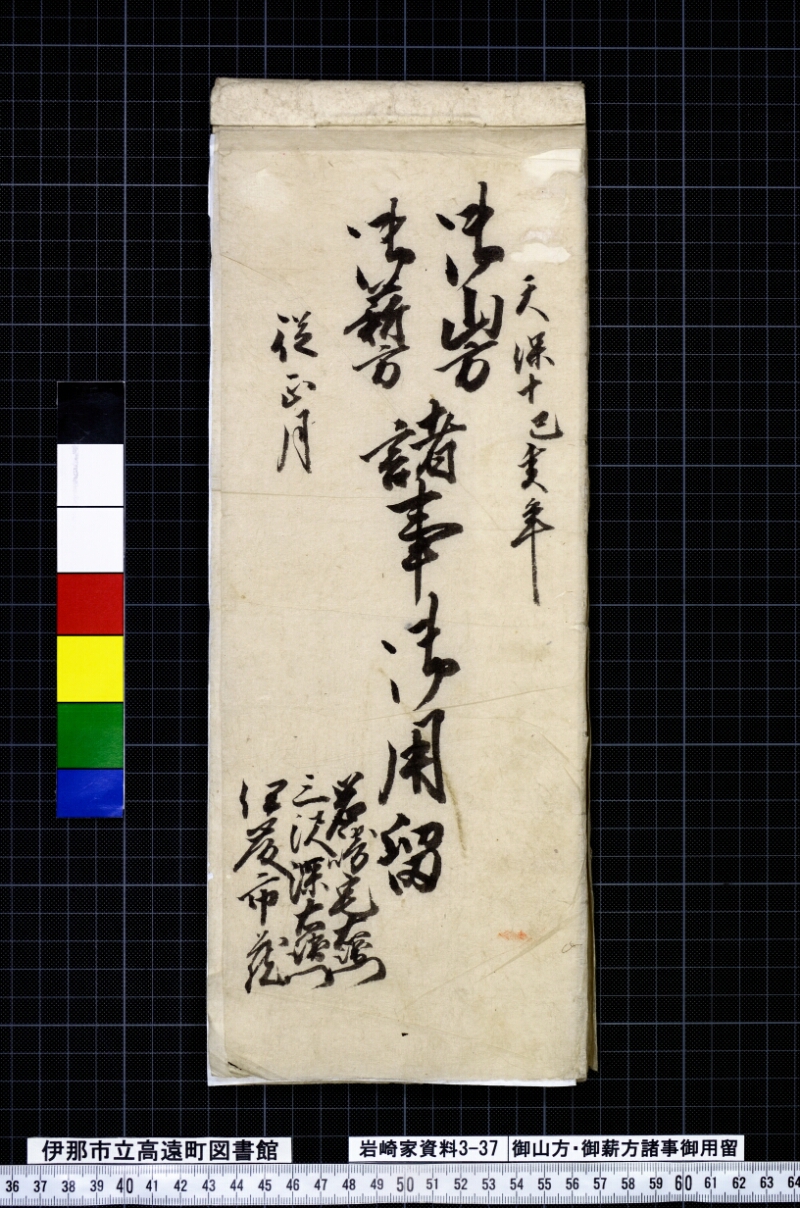 天保十己亥年
御山方
御薪方
諸事御用留
従正月
岩崎 右衛門
三沢深右衛門
伊藤市蔵
伊那市立高遠町図書館
岩崎家資料3-37
御山方・御薪方諸事御用留
36 37 38 39 40 41 42 43 44 45 46 47 48 49 50 51 52 53 54 55 56 57 58 59 60 61 62 63 64